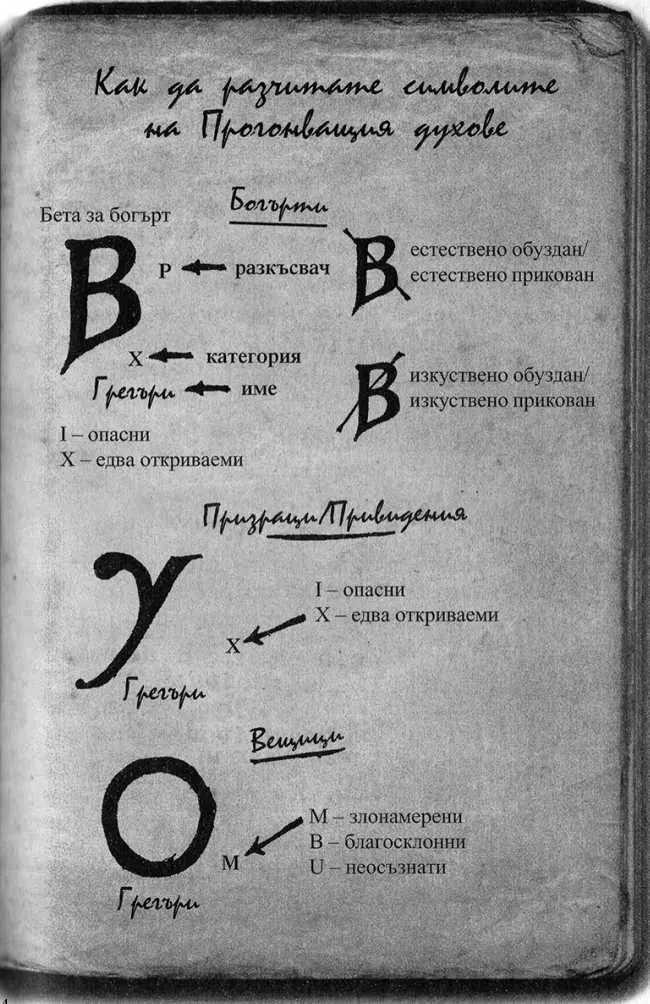 Как да разчитате символите
на Прогонващия духове
Богърти
Бета за богърт
B
P
разкъсвач
X
категория
Грегъри
име
I – опасни
X – едва откриваеми
B
естествено обуздан/
естествено прикован
B
изкуствено обуздан/
изкуствено прикован
Призраци/Привидения
γ
X
Грегъри
I – опасни
X – едва откриваеми
Вещици
O
M
Грегъри
M – злонамерени
B – благосклонни
U – неосъзнати
4